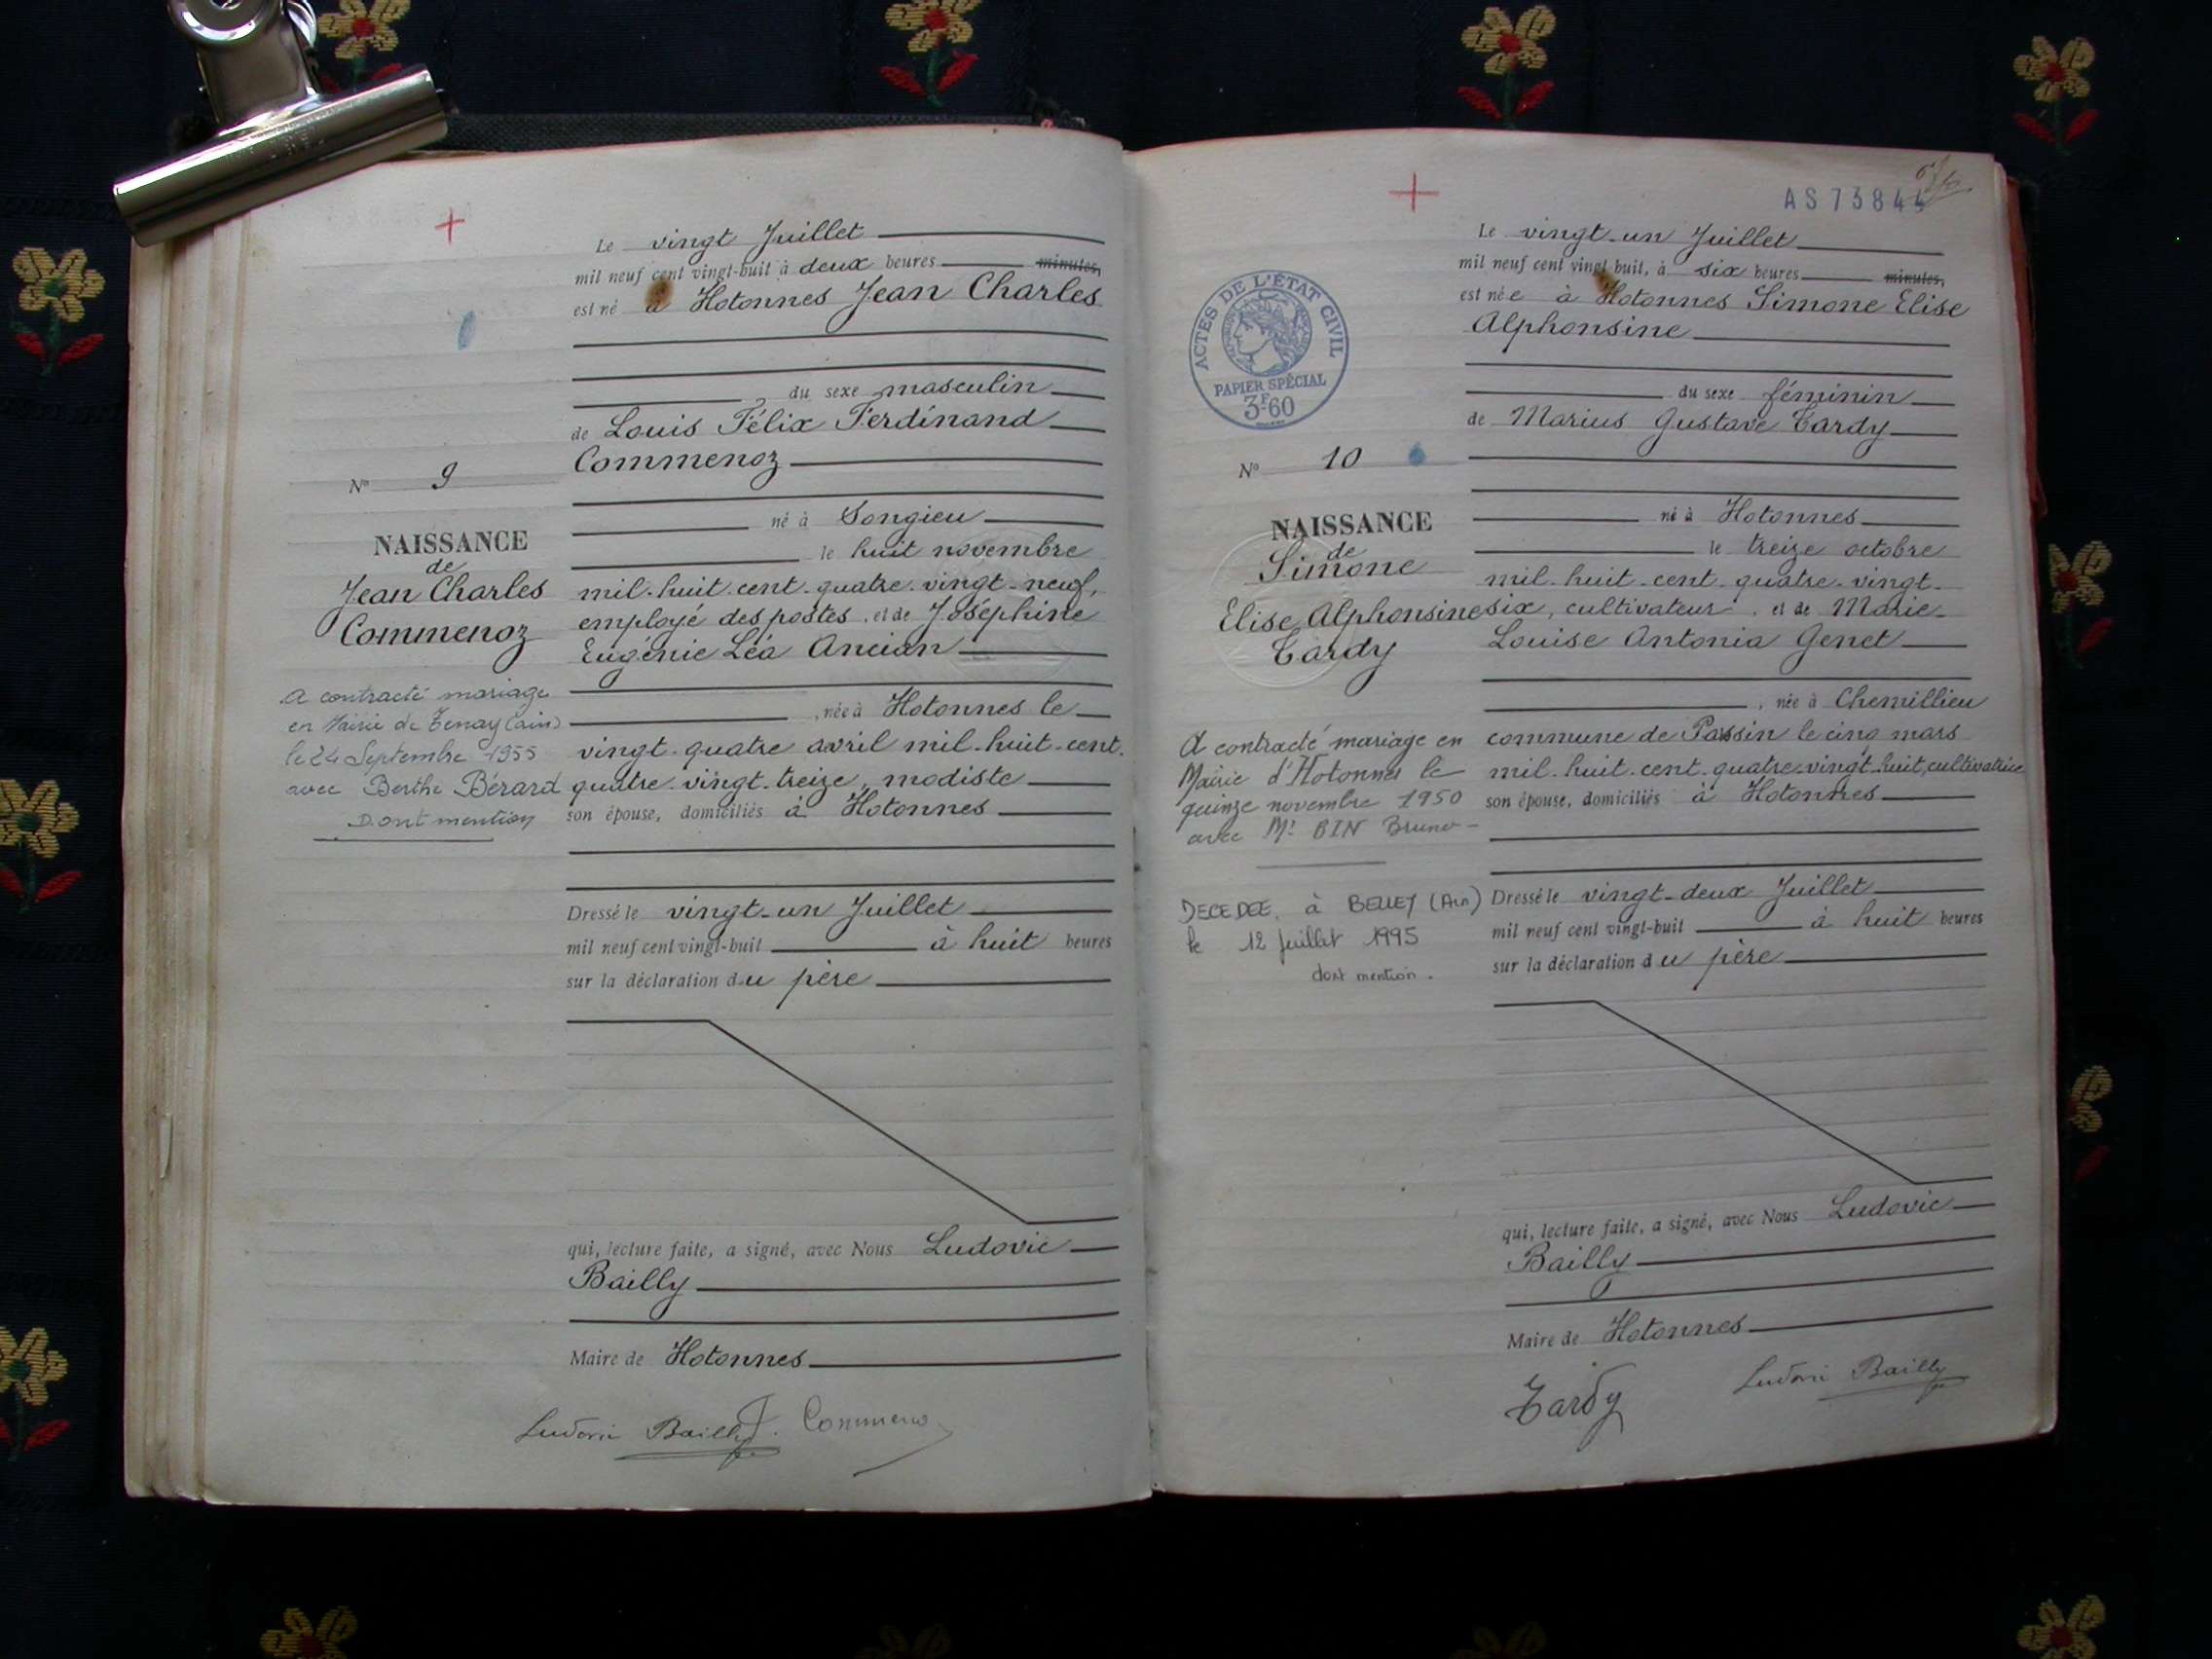 Le vingt Juillet
mil neuf cent vingt-huit à deux heures minutes,
est né à Hotonnes Jean Charles
du sexe masculin
de Louis Félix Ferdinand
Commenoz
né à Songieu
le huit novembre
mil-huit-cent-quatre-vingt-neuf,
employé des postes, et de Joséphine
Eugénie Léa Ancian
, née à Hotonnes le
vingt-quatre avril mil-huit-cent-
quatre-vingt-treize, modiste
son épouse, domiciliés à Hotonnes
Dressé le vingt-un Juillet
mil neuf cent vingt-huit à huit heures
sur la déclaration du père
qui, lecture faite, a signé, avec Nous Ludovic
Bailly
Maire de Hotonnes
Ludovic Bailly. Commenoz
N° 9
NAISSANCE
de
Jean Charles
Commenoz
A contracté mariage
en Mairie de Tenay (Ain)
le 24 Septembre 1955
avec Berthe Bérard
Dont mention
AS 73844
Le vingt-un Juillet
mil neuf cent vingt-huit, à six heures minutes,
est née à Hotonnes Simone Elise
Alphonsine
du sexe féminin
de Marius Gustave Tardy
né à Hotonnes
le treize octobre
mil-huit-cent-quatre-vingt-
six, cultivateur, et de Marie-
Louise Antonia Genet
, née à Chemillieu
commune de Passin le cinq mars
mil-huit-cent-quatre-vingt-huit, cultivatrice
son épouse, domiciliés à Hotonnes
Dressé le vingt-deux Juillet
mil neuf cent vingt-huit à huit heures
sur la déclaration du père
qui, lecture faite, a signé, avec Nous Ludovic
Bailly
Maire de Hotonnes
Tardy Ludovic Bailly
ACTES DE L'ÉTAT CIVIL
PAPIER SPÉCIAL
3F60
N° 10
NAISSANCE
de
Simone
Elise Alphonsine
Tardy
A contracté mariage en
Mairie d'Hotonnes le
quinze novembre 1950
avec Mr BIN Bruno -
DECEDEE à BELLEY (Ain)
le 12 juillet 1995
dont mention.